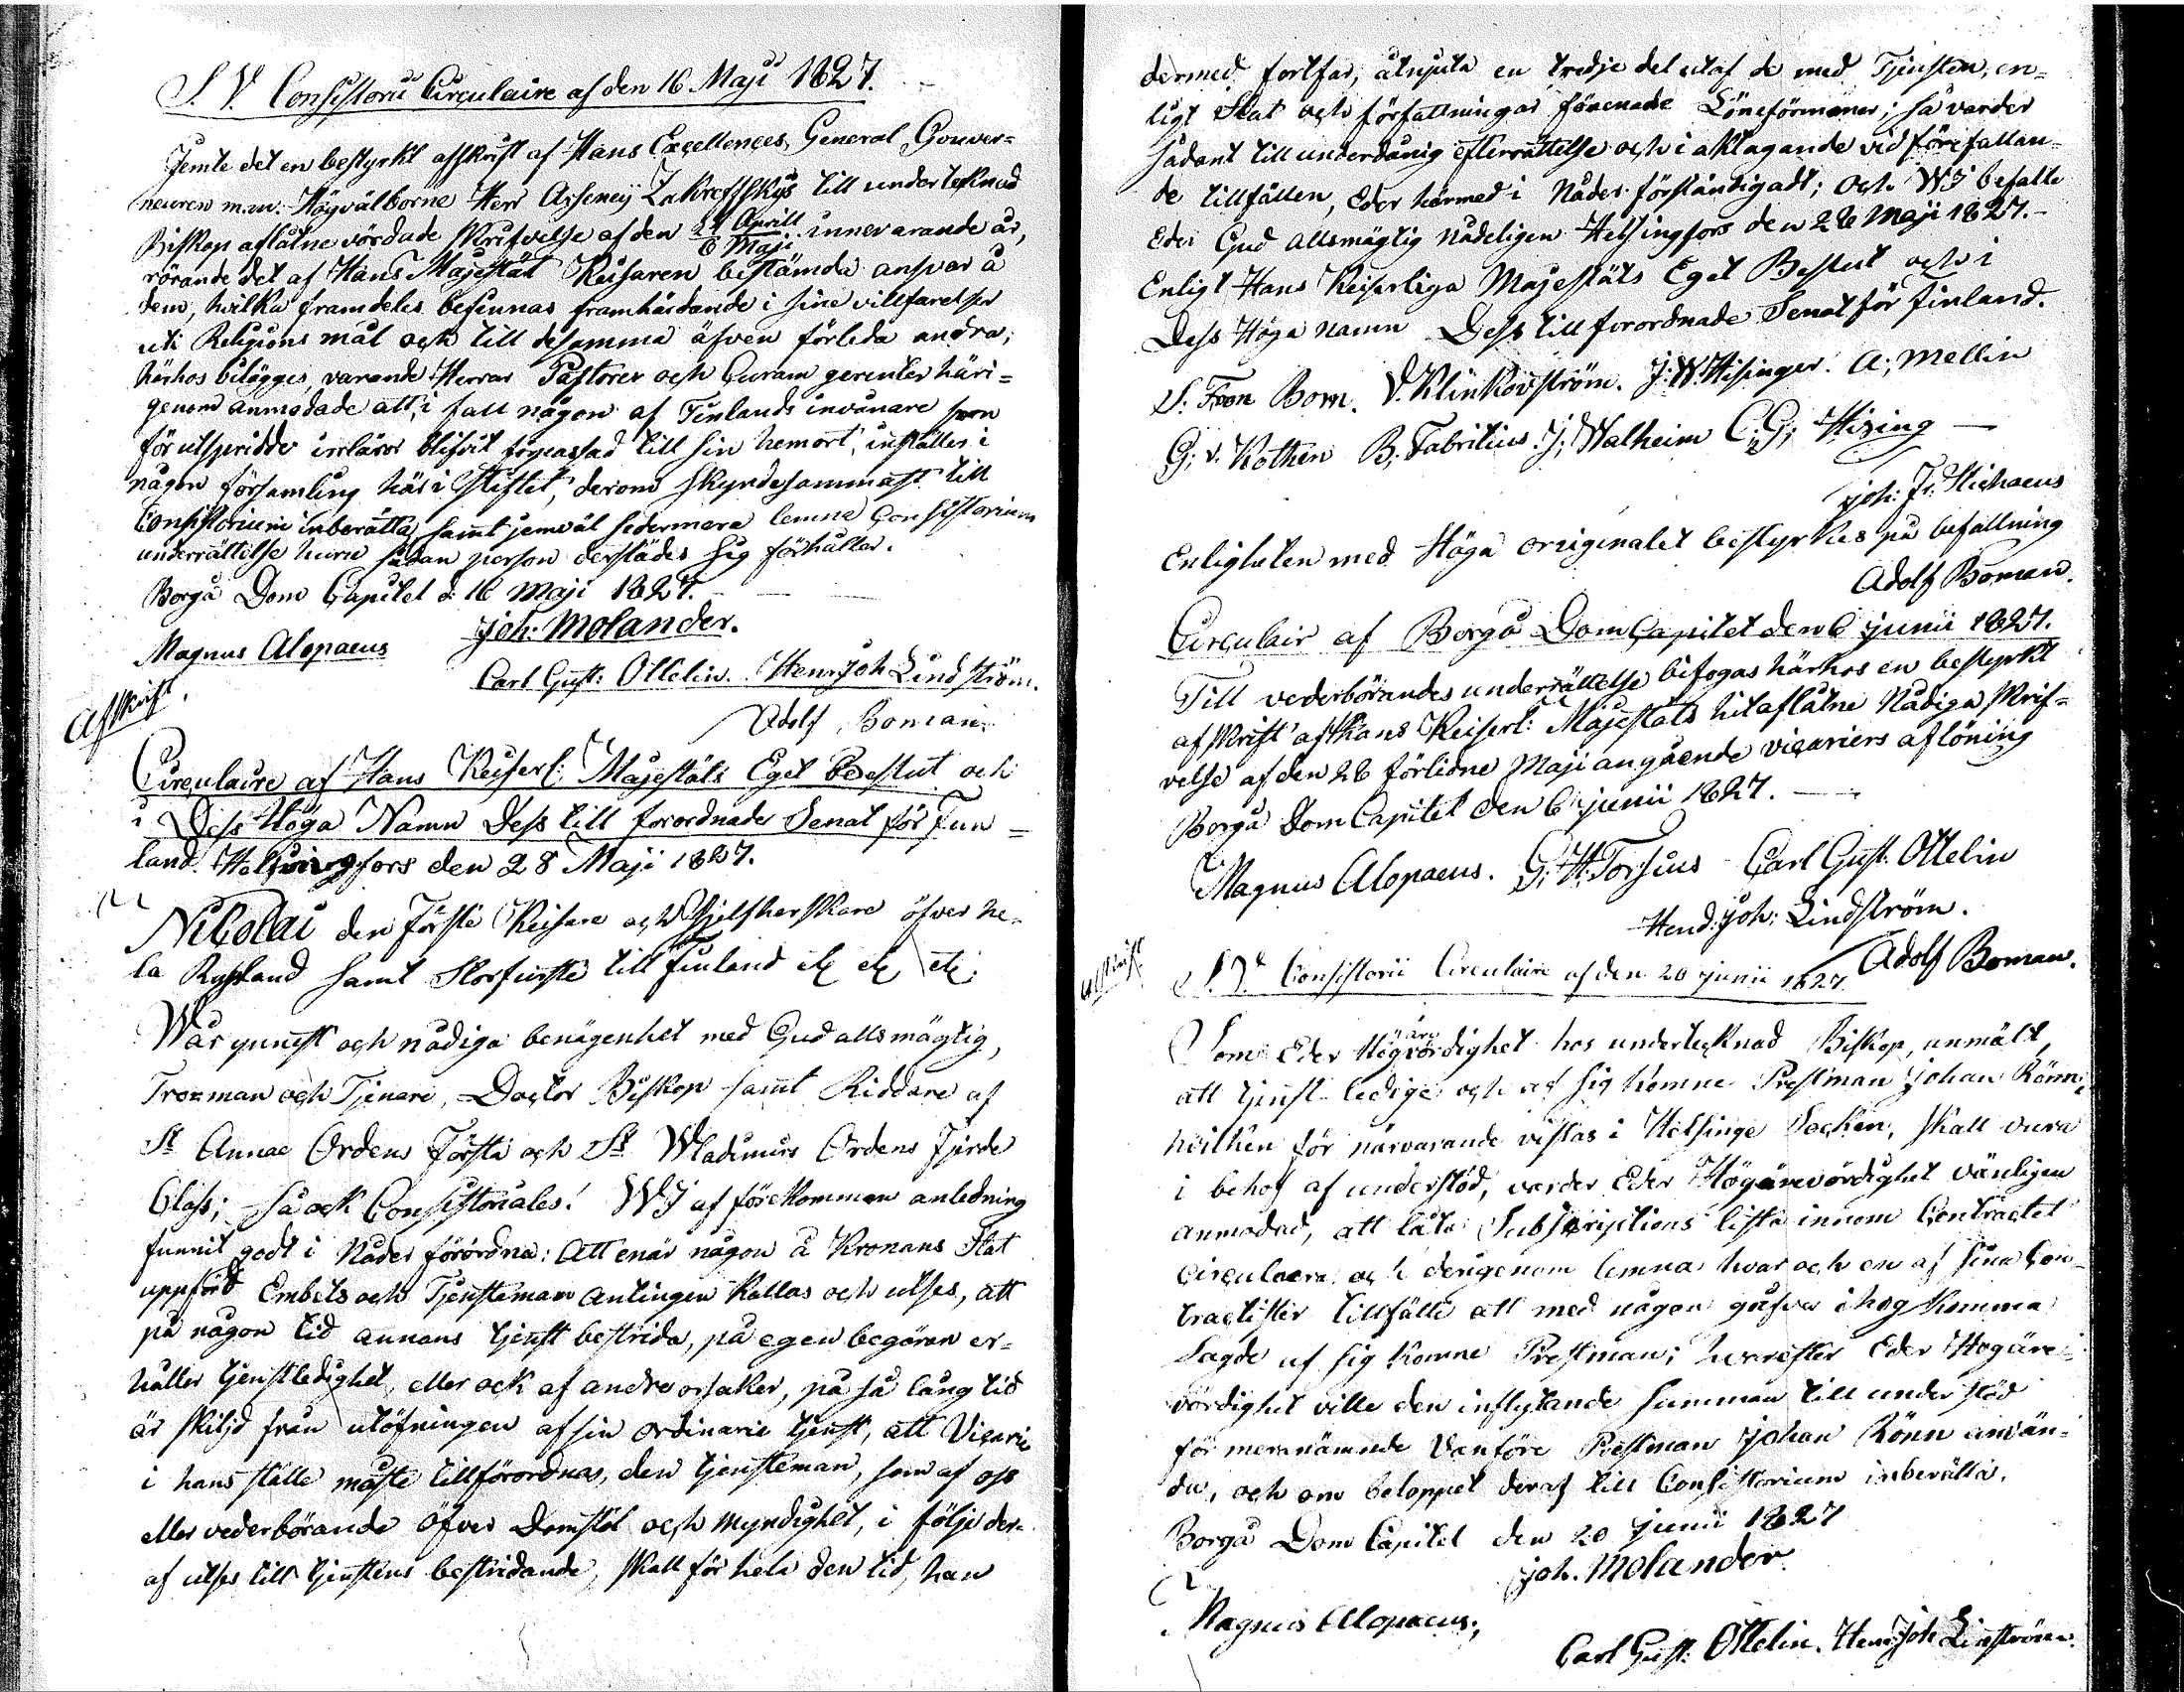 S. V. Consistorii Circulaire af den 16 Maji 1827.
Jemte det en bestyrkt afskrift af Hans Excellences, General Gouver=
neuren m.m. Högvälborne Herr Arseneij Zakreffskijs till undertecknad
Biskop aflåtne vördade skrifvelse af den 24 Aprill / 6 Maji innevarande år,
rörande det af Hans Majestät Keisaren bestämda ansvar å
dem, hvilka framdeles befinnas framhärdande i sine villfarelser
uti Religions mål och till desamma äfven förleda andra;
härhos bilägges, varande Herrar Pastorer och Curam gerenter häri=
genom anmodade att, i fall någon af Finlands invånare som
för utspridde irrläror blifvit förpassad till sin hemort, inställer i
någon församling här i Stiftet, derom skyndesammast till
Consistorium inberätta, samt jemväl sedermera lemna Consistorium
underrättelse huru sådan person derstädes sig förhåller.
Borgå Dom Capitel d. 16 Maji 1827.
Joh: Molander.
Magnus Alopaeus
Carl Gust: Ottelin. Henr Joh Lindström.
Adolf Boman.
Afskrift.
Circulaire af Hans Keiserl: Majestäts Eget Beslut och
i Dess Höga Namn Dess till forordnade Senat för Fin=
land. Helsingfors den 28 Maji 1827.
Nicolai den Förste Keisare och Sjelfherskare öfver he=
la Ryssland samt Storfurste till Finland etc etc etc.
Wår gunst och nådiga benägenhet med Gud allsmägtig,
Troman och Tjenare, Doctor Biskop samt Riddare af
St Annae Ordens Förste och St Wladimirs Ordens Fjerde
Class; så ock Consistoriales! WJ af förekommen anledning
funnit godt i Nåder förordna: Att enär någon å Kronans Stat
uppförd Embets och Tjensteman antingen kallas och utses, att
på någon tid annans tjenst bestrida, på egen begäran er=
håller tjenstledighet, eller ock af andre orsaker, på så lång tid
är skiljd från utöfningen af sin ordinarie tjenst, att Vicarie
i hans ställe måste tillförordnas, den tjensteman, som af oss
eller vederbörande Öfver Domstol och Myndighet, i följe der=
af utses till tjenstens bestridande, skall för hela den tid, han
dermed fortfar, åtnjuta en tredje del utaf de med Tjensten, en=
ligt Stat och författningar förenade Löneförmoner; så varder
sådant till underdånig efterrättelse och i akttagande vid förefallan=
de tillfällen, Eder härmed i Nåder förständigadt; och WJ befalle
Eder Gud allsmägtig nådeligen Helsingfors den 28 Maji 1827.-
Enligt Hans Keiserliga Majestäts Eget Beslut och i
Dess Höga namn Dess till forordnade Senat för Finland.
S. Fr: von Born. V. Klinkovström. J: W. Hisinger. A; Mellin
G; v. Rothen B; Fabritius. J; Walheim C. G; Hising
Joh: Fr: Hichaeus
Enligheten med Höga originalet bestyrkes på befallning
Adolf Boman.
Circulair af Borgå Dom Capitel den 6 junii 1827.
Till vederbörandes underrättelse bifogas härhos en bestyrkt
afskrift af Hans Keiserl: Majestäts hitaflåtne Nådiga Skrif=
velse af den 28 förlidne Maji angående vicariers aflöning
Borgå Dom Capitel den 6 junii 1827.
Magnus Alopaeus. G; H: Forsius Carl Gust: Ottelin
Hend: Joh: Lindström.
Adolf Boman.
Afskrift
S. V. Consistorii Circulaire af den 20 junii 1827.
Som Eder Högärevördighet hos undertecknad Biskop, anmält,
att tjenst ledige och af sig komne Prestman Johan Rönn,
hvilken för närvarande vistas i Helsinge Socken, skall vara
i behof af understöd, varder Eder Högärevördighet vänligen
anmodad, att låta Subscriptions lista innom Contractet
circulera och derigenom lemna hvar och en af sina Con=
tractister tillfälle att med någon gåfva ihogkomma
sagde af sig komne Prestman; hvarefter Eder Högäre=
vördighet ville den inflytande summan till understöd
för mernämnde vanföre Prestman Johan Rönn använ=
da, och om beloppet deraf till Consistorium inberätta.
Borgå Dom Capitel den 20 Junii 1827
Joh. Molander.
Magnus Alopaeus;
Carl Gust: Ottelin. Henr Joh Linström.